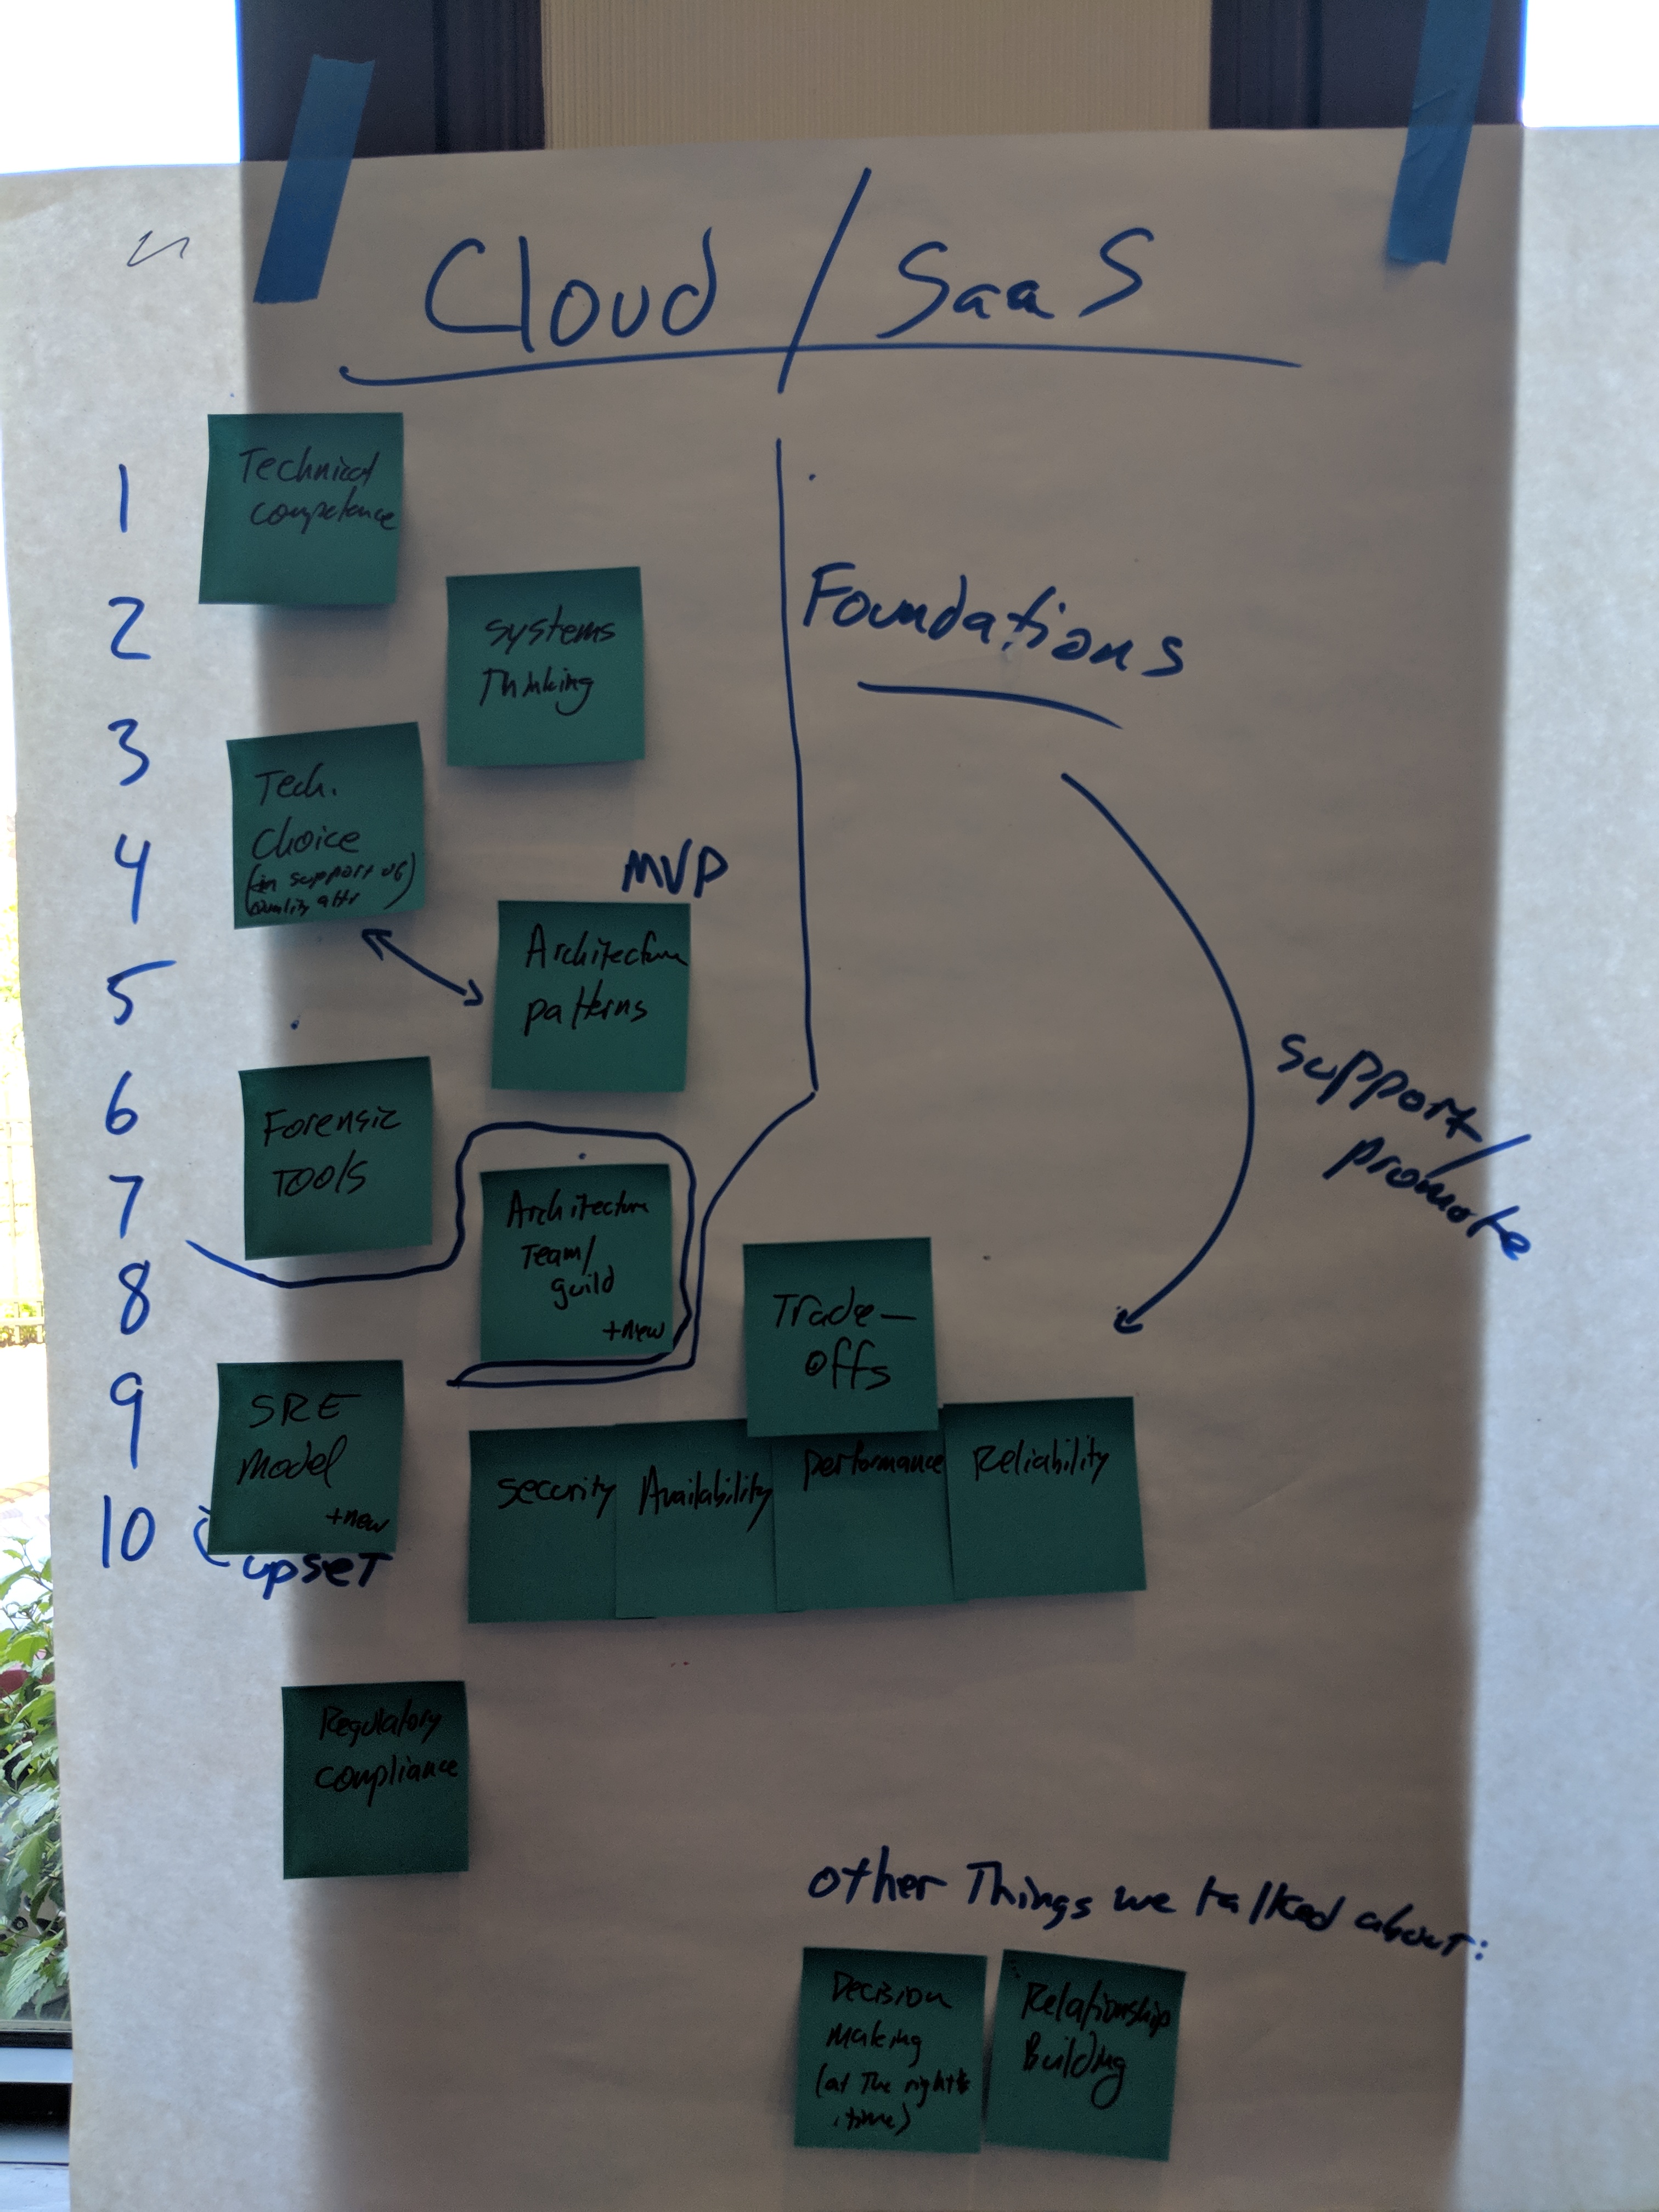 Cloud / SaaS
1
Technical
competence
2
systems
Thinking
Foundations
3
Tech.
Choice
(in support of)
Quality attr
4
MVP
Architecture
patterns
5
6
Forensic
TOOLS
7
Architecture
Team/
guild
+new
8
Trade-
offs
support/
promote
9
SRE
Model
+new
10
upset
security
Availability
performance
Reliability
Regulatory
compliance
other Things we talked about:
Decision
Making
(at The right
time)
Relationship
Building